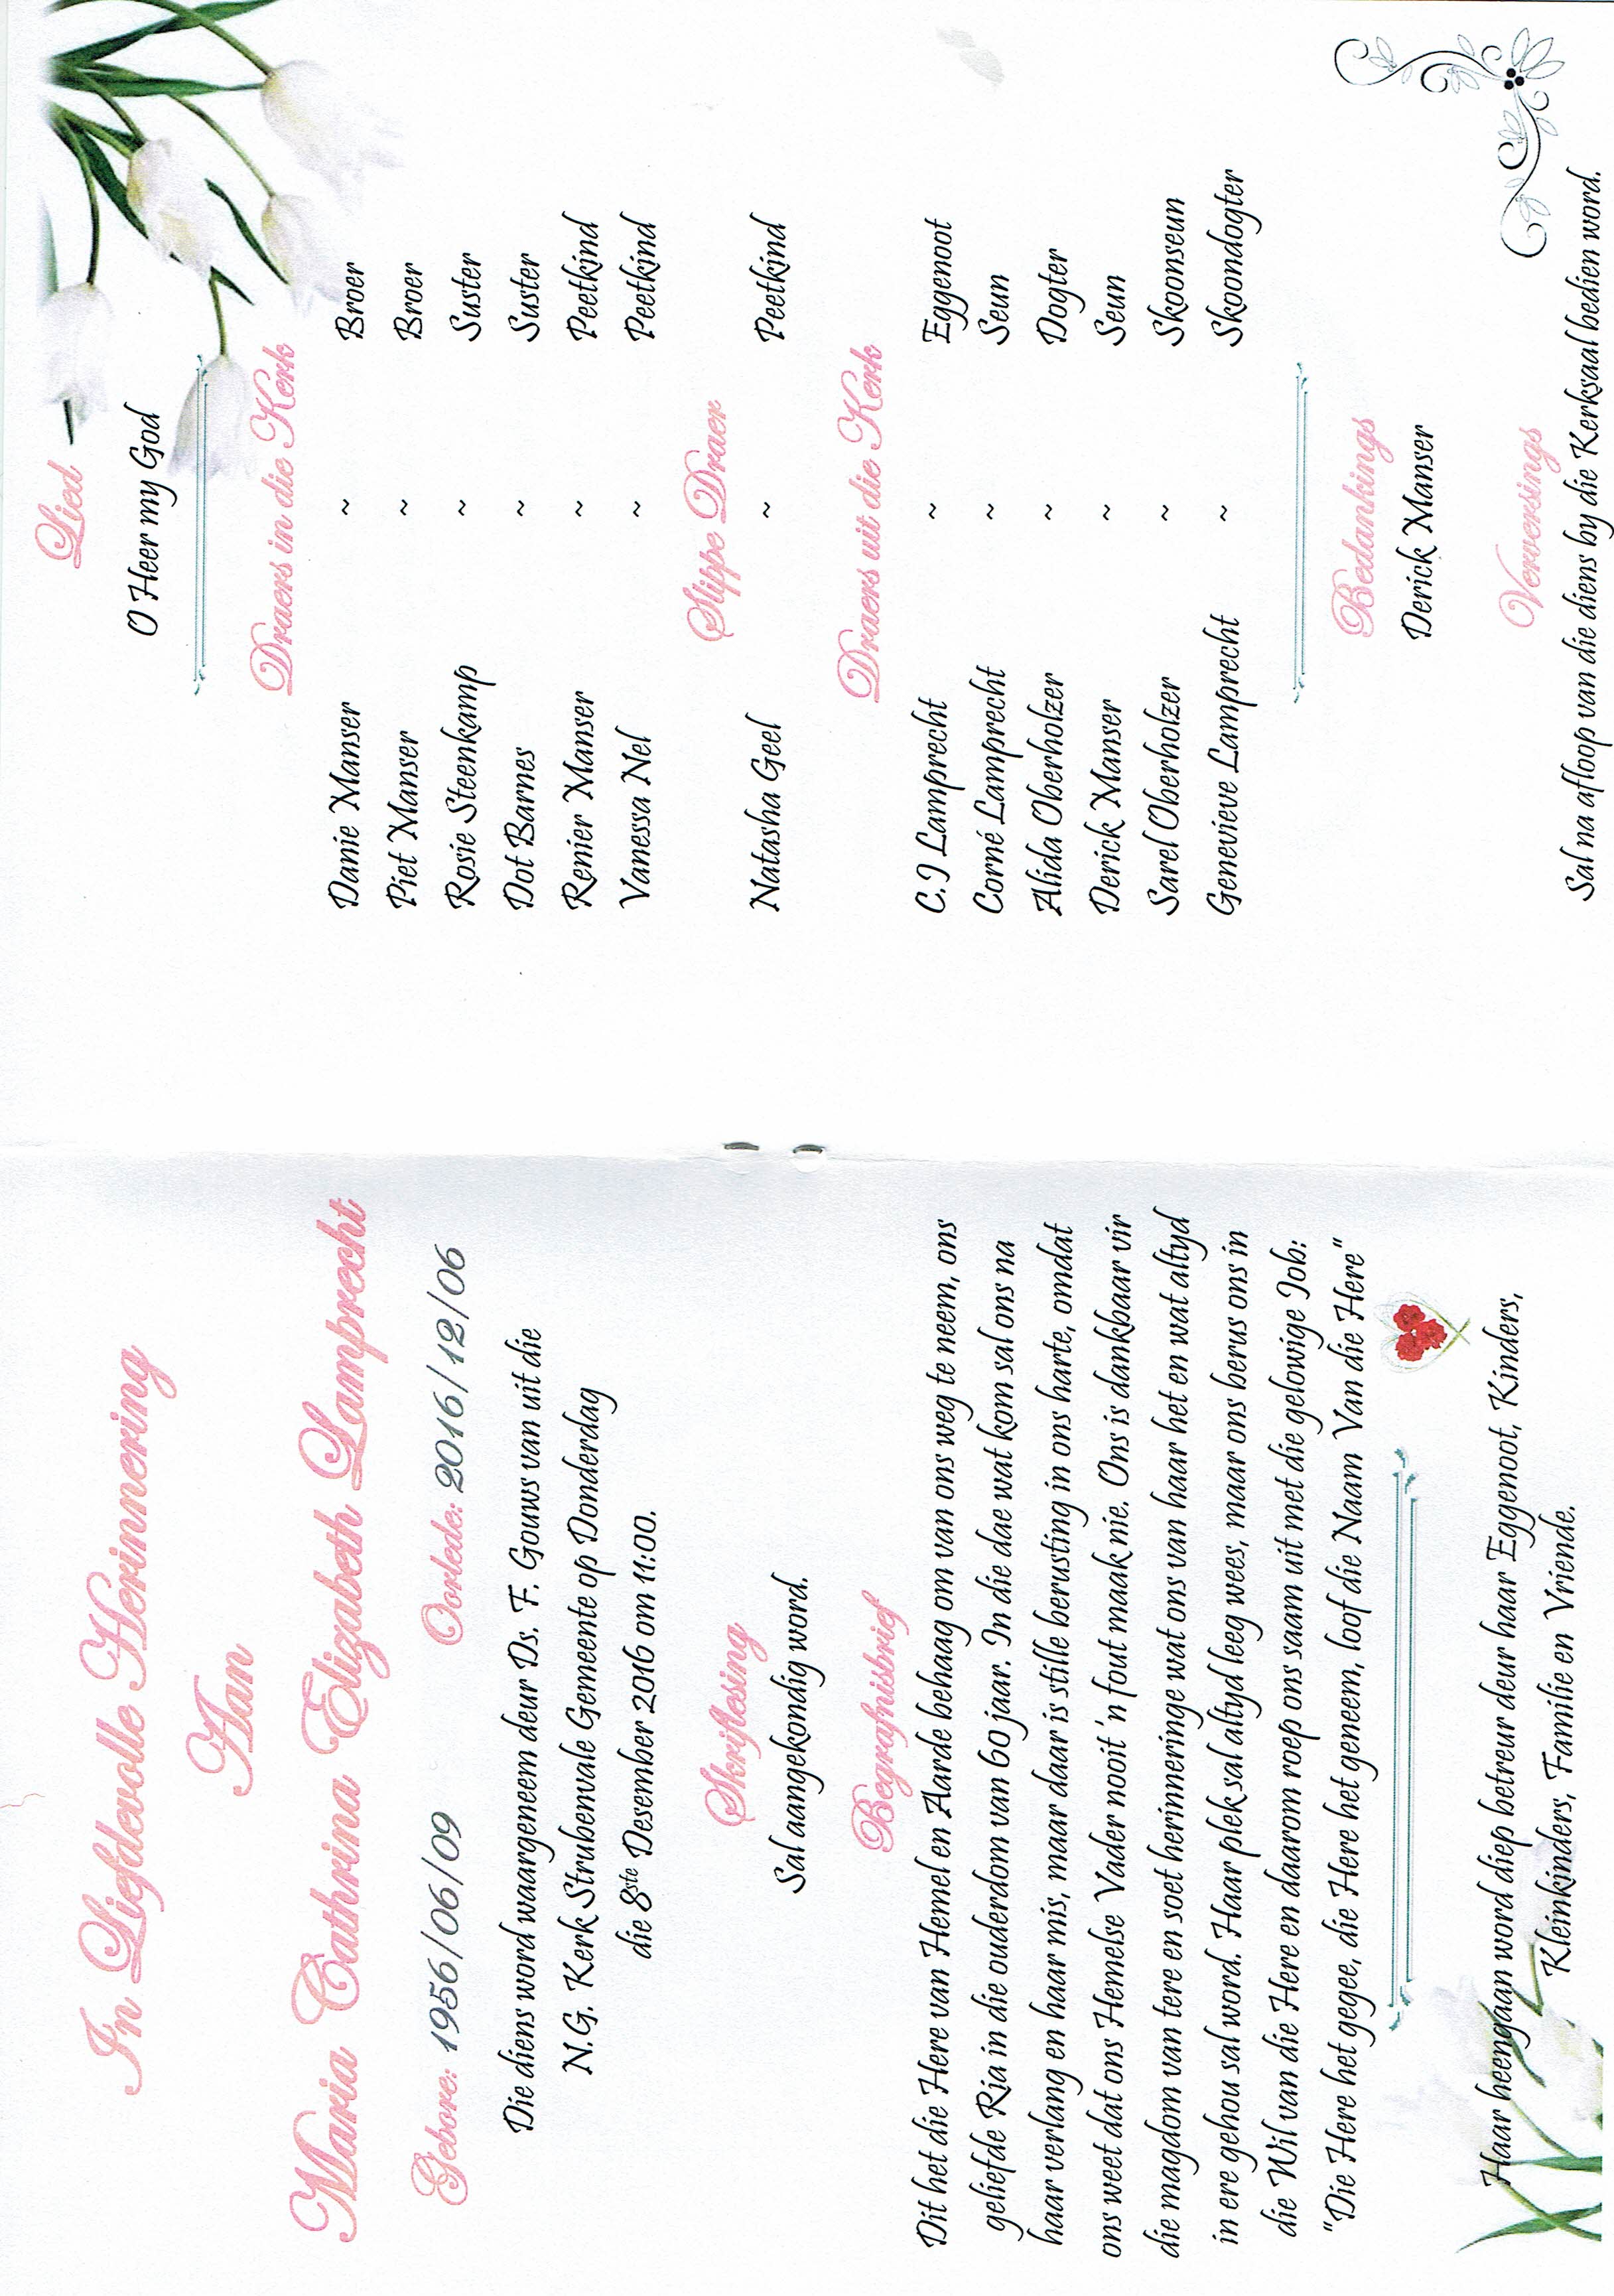 In Liefdevolle Herinnering
Aan
Maria Cathrina Elizabeth Lamprecht
Gebore: 1956/06/09 Oorlede: 2016/12/06
Die diens word waargeneem deur Ds. F. Gouws van uit die
N.G. Kerk Strubenvale Gemeente op Donderdag
die 8ste Desember 2016 om 11:00.
Skriflesing
Sal aangekondig word.
Begrafnisbrief
Dit het die Here van Hemel en Aarde behaag om van ons weg te neem, ons
geliefde Ria in die ouderdom van 60 jaar. In die dae wat kom sal ons na
haar verlang en haar mis, maar daar is stille berusting in ons harte, omdat
ons weet dat ons Hemelse Vader nooit 'n fout maak nie. Ons is dankbaar vir
die magdom van tere en soet herinneringe wat ons van haar het en wat altyd
in ere gehou sal word. Haar plek sal altyd leeg wees, maar ons berus ons in
die Wil van die Here en daarom roep ons saam uit met die gelowige Job:
"Die Here het gegee, die Here het geneem, loof die Naam Van die Here"
Haar heengaan word diep betreur deur haar Eggenoot, Kinders,
Kleinkinders, Familie en Vriende.
Lied
O Heer my God
Draers in die Kerk
Danie Manser ~ Broer
Piet Manser ~ Broer
Rosie Steenkamp ~ Suster
Dot Barnes ~ Suster
Renier Manser ~ Peetkind
Vanessa Nel ~ Peetkind
Slippe Draer
Natasha Geel ~ Peetkind
Draers uit die Kerk
C.J Lamprecht ~ Eggenoot
Corné Lamprecht ~ Seun
Alida Oberholzer ~ Dogter
Derick Manser ~ Seun
Sarel Oberholzer ~ Skoonseun
Genevieve Lamprecht ~ Skoondogter
Bedankings
Derick Manser
Verversings
Sal na afloop van die diens by die Kerksaal bedien word.